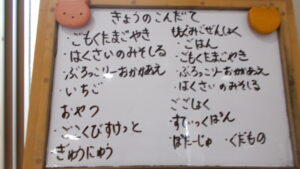 きょうのこんだて
・ごもくたまごやき
・はくさいのみそしる
・ぶろっこりーおかかあえ
・いちご
おやつ
・ごこくびすけっと
・ぎゅうにゅう
ごぜんしょく
・ごはん
・ごもくたまごやき
・ぶろっこりーおかかあえ
・はくさいのみそしる
ごごしょく
・すてぃっくぱん
・ぽたーじゅ ・くだもの